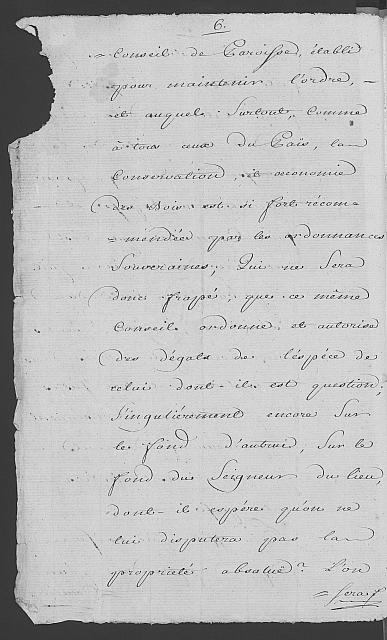 6.
Conseil de Paroisse, établi
pour maintenir l'ordre,
et auquel surtout, comme
à tous ceux du Païs, la
Conservation, et œconomie
des Bois est si fort récom=
=mendée par les ordonnances
Souveraines; Qui ne sera
donc frapé, que ce même
Conseil ordonne et autorise
des dégats de l'éspéce de
celui dont il est question;
Singuliérement encore sur
le fond d'autrui, sur le
fond du Seigneur du lieu,
dont il espére qu'on ne
lui disputera pas la
propriété absolue? L'on
= sera